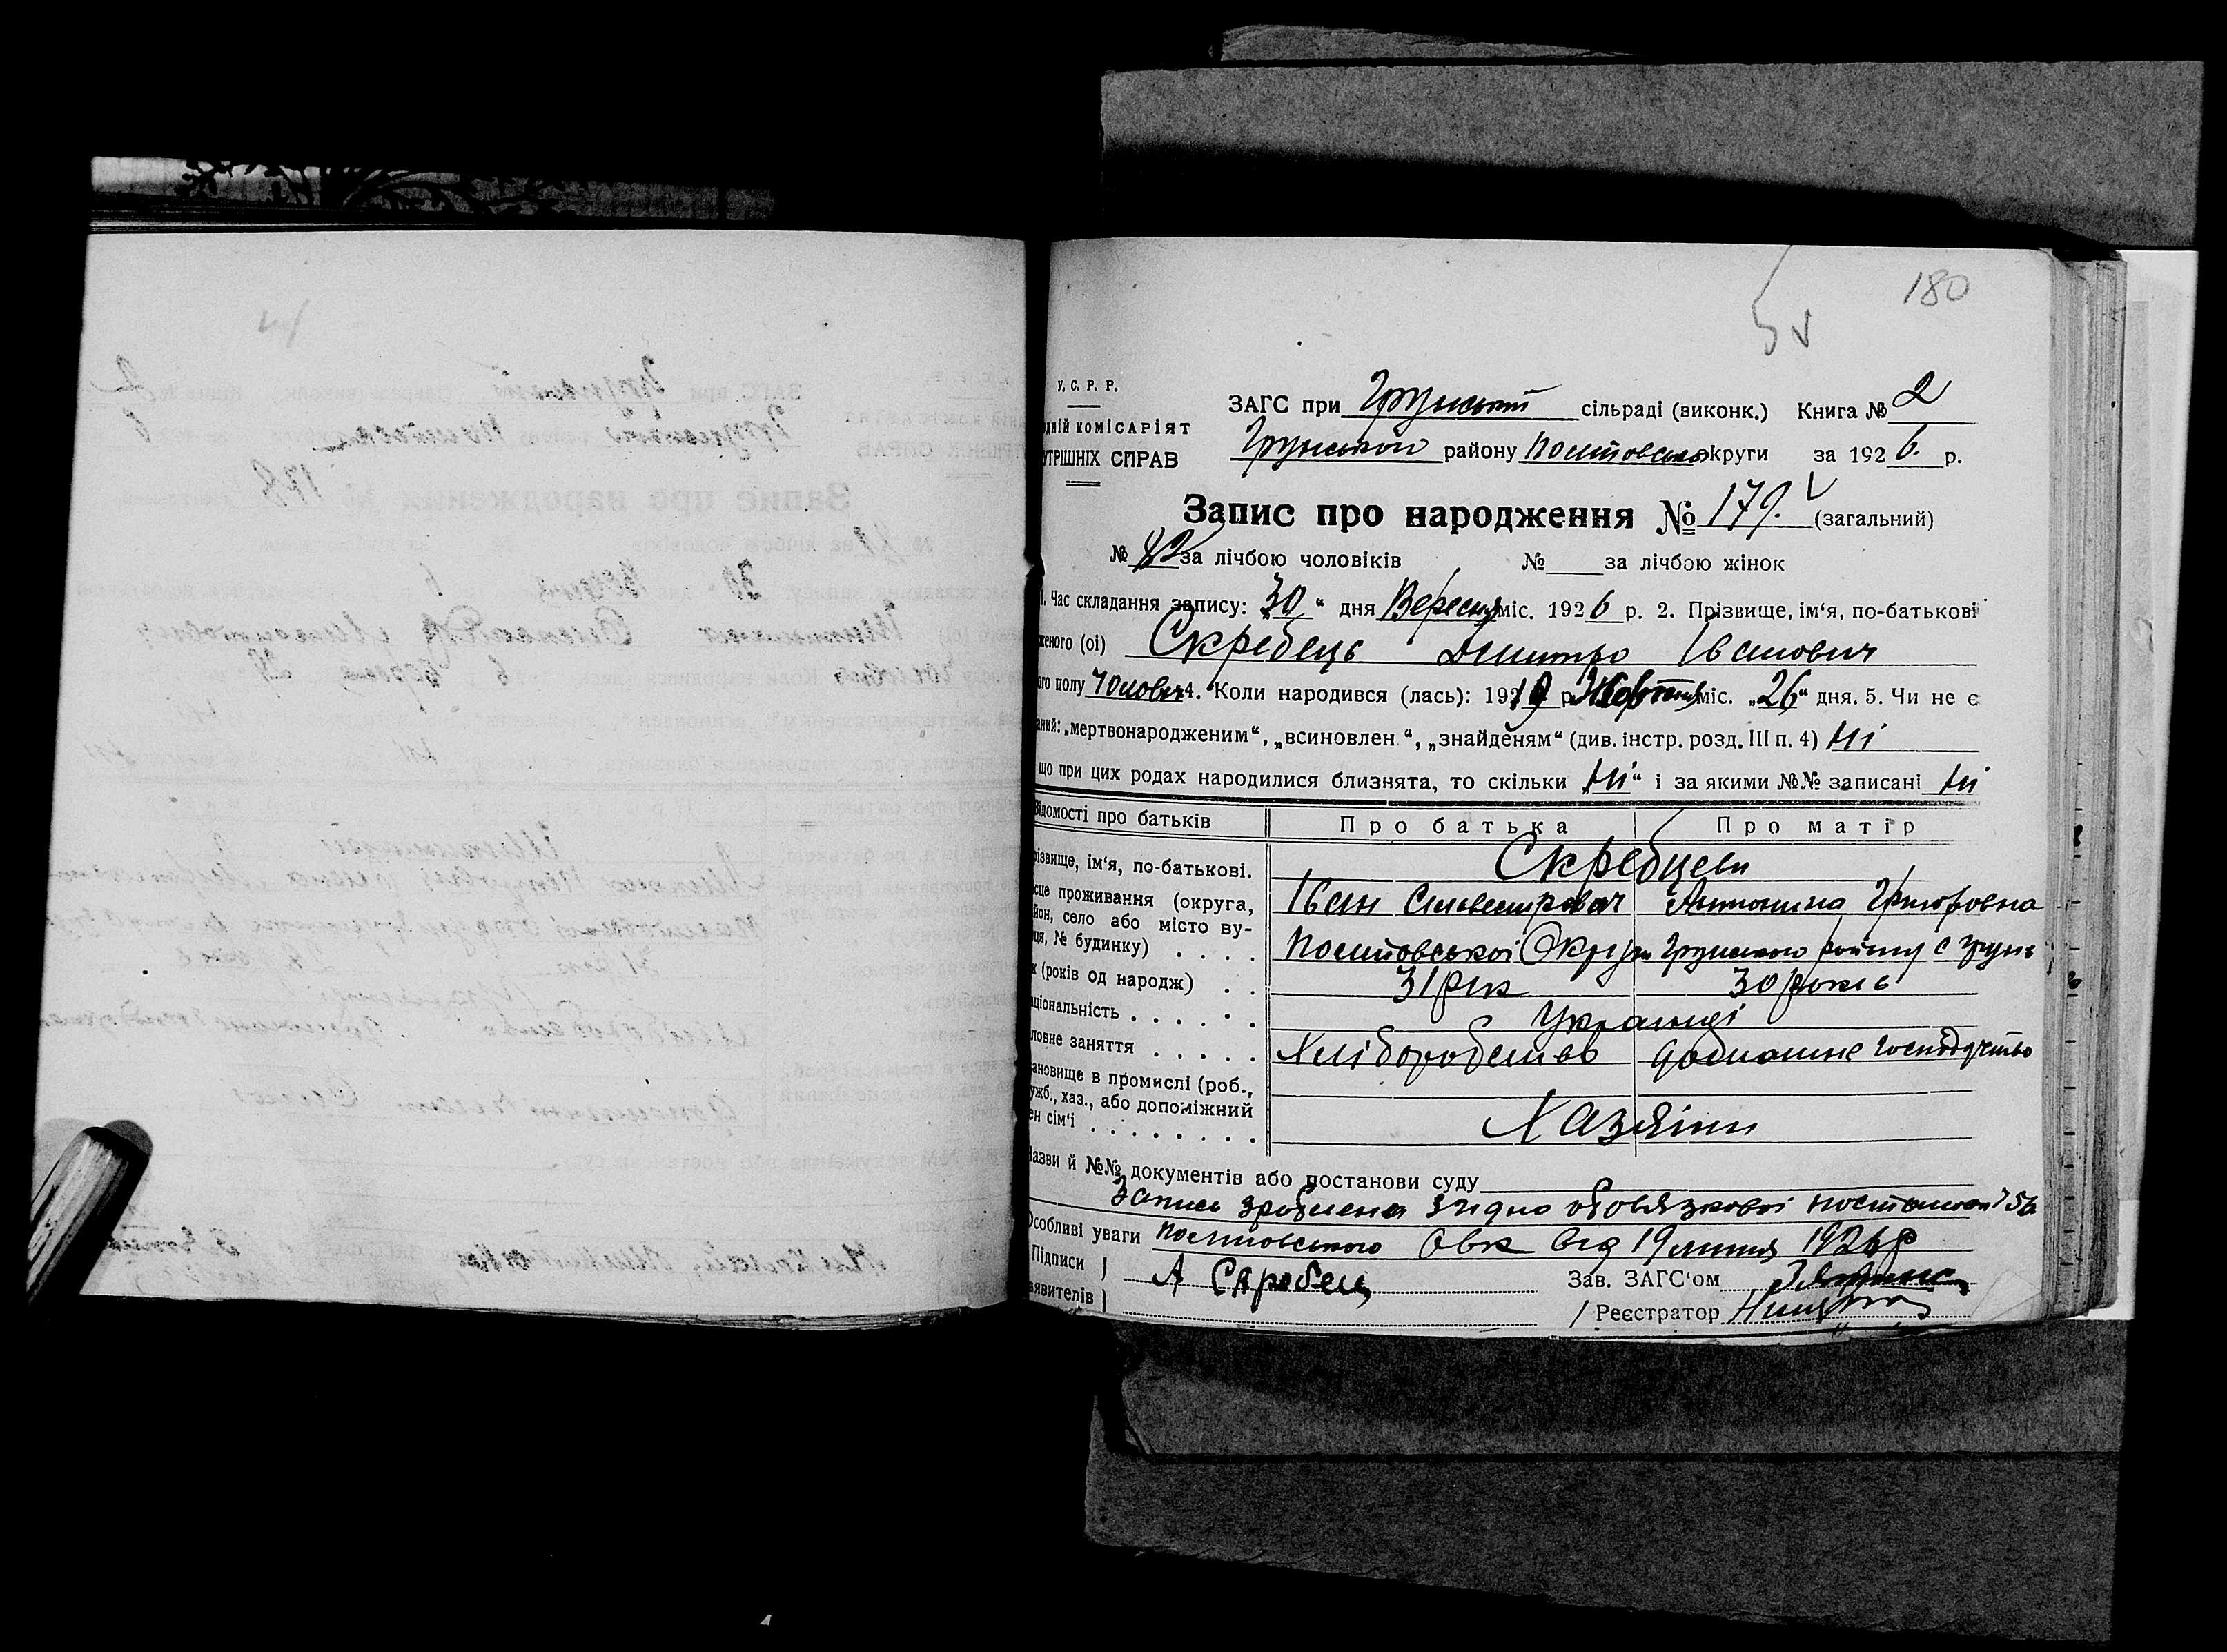 180
У. С. Р. Р.
ЗАГС при Грунській сільраді (виконк.) Книга № 2
дній комісаріят
Грунського району Полтовської округи за 1926. р.
утрішніх справ
Запис про народження № 179. (загальний)
№ 82 за лічбою чоловіків № за лічбою жінок
1. Час складання запису: 30 " дня Вересня міс. 1926 р. 2. Прізвище, ім'я, по-батькові
женого (ої) Скребець Дмитро Іванович
ого полу чоловіч 4. Коли народився (лась): 1919 р. Жовтня міс. „26" дня. 5. Чи не є
аний: „мертвонародженим", „всиновлен ", „знайденям" (див. інстр. розд. III п. 4) Ні
що при цих родах народилися близнята, то скільки „Ні" і за якими №№ записані Ні
Відомості про батьків Про батька Про матір
різвище, ім'я, по-батькові. Скребцеви
сце проживання (округа, Іван Сильвестрович Антонина Григоровна
йон, село або місто ву-
ця, № будинку) . . . . Полтовської Округи Грунського району с Грунь
к (років од народж) . . 31 рік 30 років
аціональність . . . . . . Українці
ловне заняття . . . . . Хліборобство домашнє господарство
ановище в промислі (роб.,
ужб., хаз., або допоміжний
ен сім'ї . . . . . . . . Хазяіни
Назви й №№ документів або постанови суду
Запись зроблена згідно обовязкової постанови 756
Особливі уваги Полтовського ОВК від 19 липня 1926 р
Підписи А Скребец Зав. ЗАГС'ом
аявителів Реєстратор